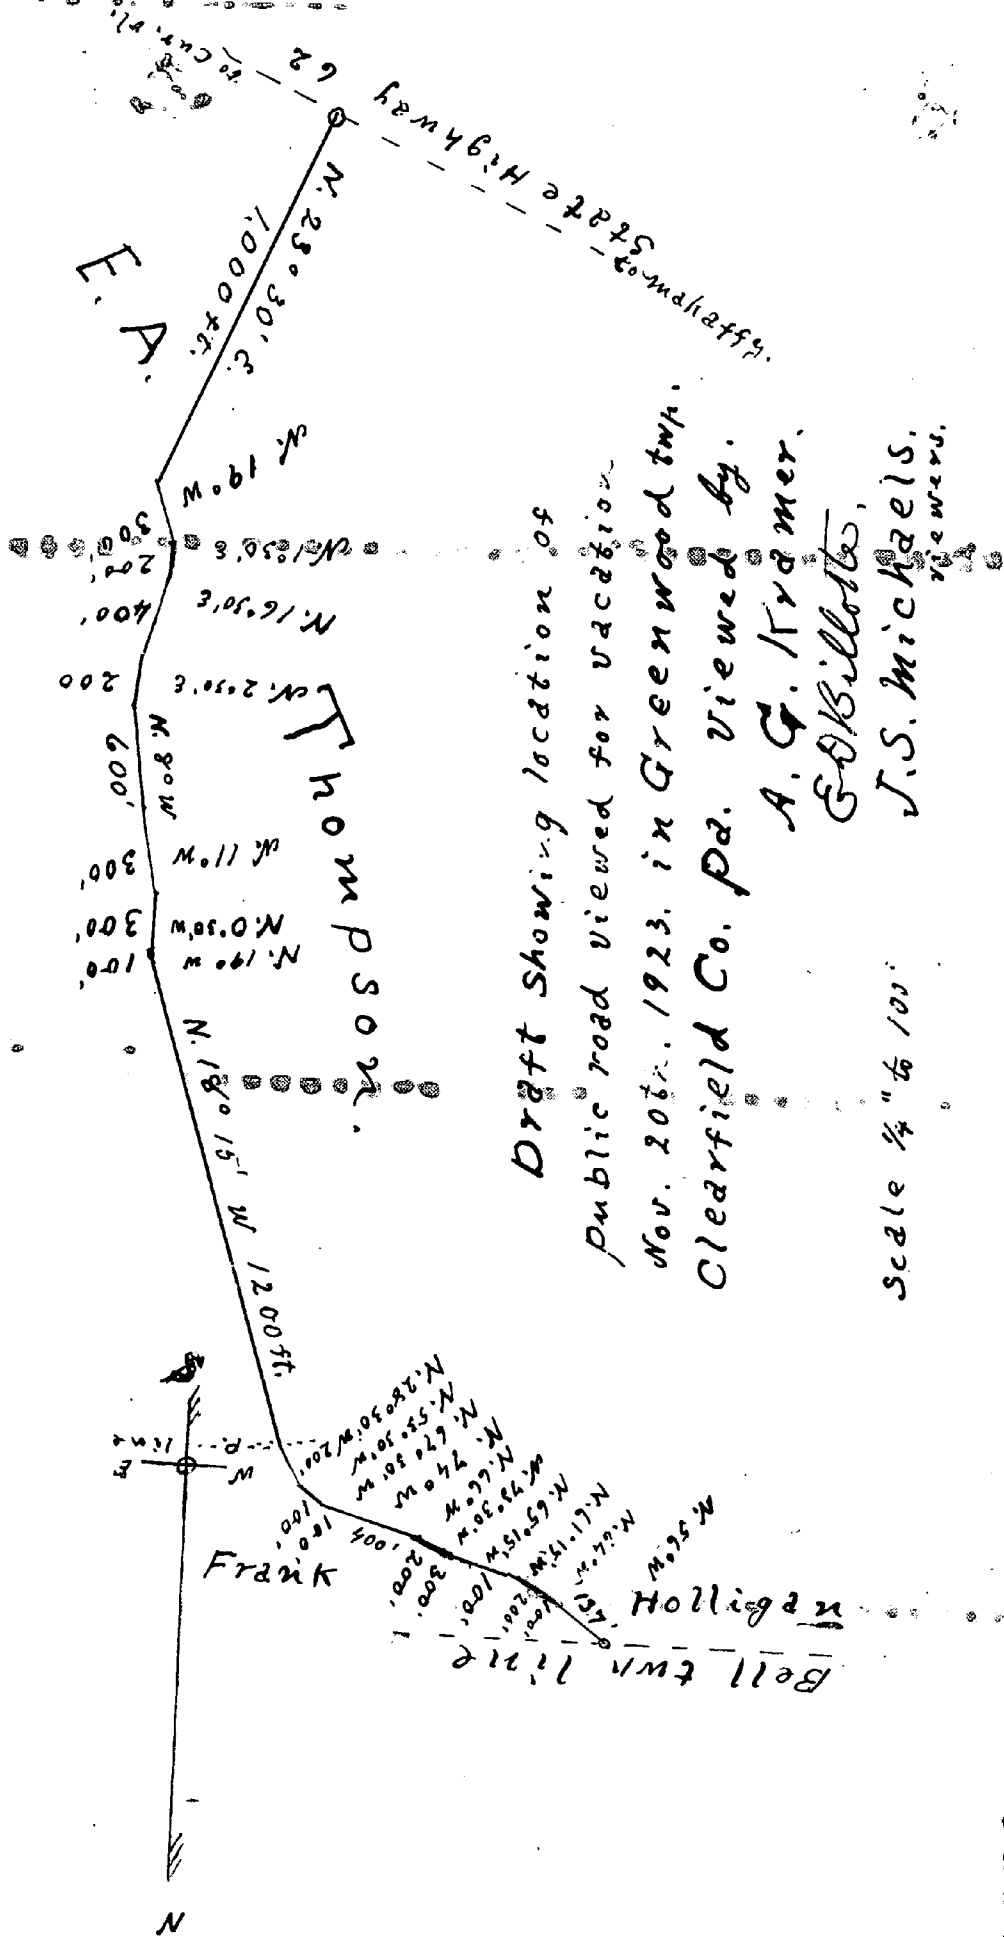 Draft Showing location of
public road viewed for vacation
Nov. 20th. 1923. in Greenwood twp.
Clearfield Co. Pa. viewed by.
A. G. Kramer.
E D Billotte,
J. S. Michaels.
viewers.
Scale 1/4" to 100'
to Cur. vl.
State Highway 62
to Mahaffey.
N. 23° 30' E.
1,000 ft.
E. A. Thompson.
N. 19° W 300'
N. 1° 30' E 200'
N. 16° 30' E 400'
N. 2° 30' E 200
N. 8° W 600'
N. 11° W 300'
N. 0° 30' W 300'
N. 19° W 100'
N. 18° 15' W 1200 ft.
P. line
N. 28° 30' W 200'
N. 53° 30' W 100'
N. 67° 30' W 100'
N. 74° W
N. 66° W 200'
N. 73° 30' W 300'
N. 65° 15' W 100'
N. 61° 15' W 200'
N. 56° W
Frank Holligan
Bell twn line
N
E
W